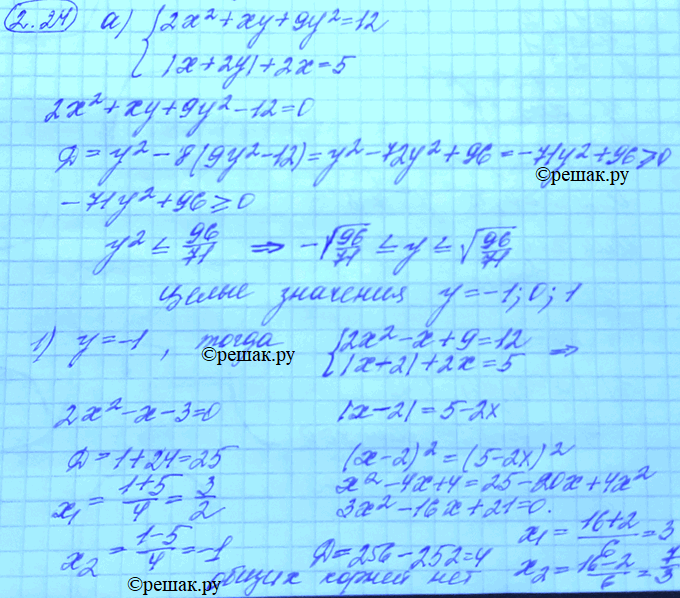 2.24 а) {2x²+xy+9y²=12
|x+2y|+2x=5
2x²+xy+9y²-12=0
Д=y²-8(9y²-12)=y²-72y²+96=-71y²+96≥0
©решак.ру
-71y²+96≥0
y² ≤ 96/71 ⇒ -√96/71 ≤ y ≤ √96/71
Целые значения y=-1; 0; 1
1) y=-1, тогда {2x²-x+9=12
|x+2|+2x=5 ⇒
©решак.ру
2x²-x-3=0 |x-2|=5-2x
Д=1+24=25 (x-2)²=(5-2x)²
x₁=(1+5)/4=3/2 x²-4x+4=25-20x+4x²
3x²-16x+21=0.
x₂=(1-5)/4=-1 Д=256-252=4 x₁=(16+2)/6=3
общих корней нет x₂=(16-2)/6=7/3
©решак.ру